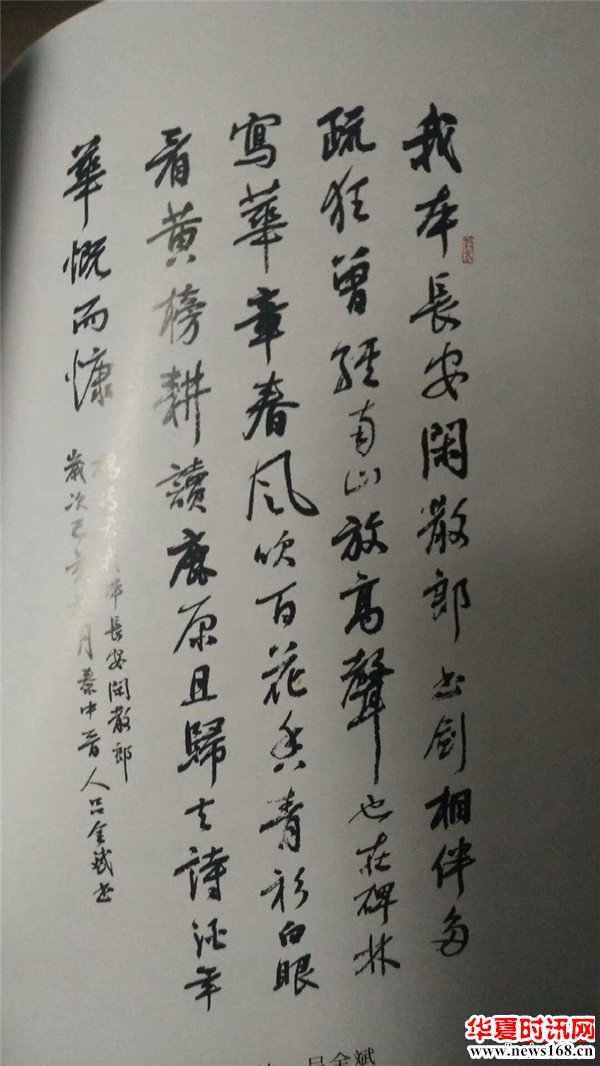 我本長安閑散郎書劍相伴多
疏狂曾經南山放高聲也在碑林
寫華章春風吹百花香青衫白眼
看黄榜耕讀康原且歸去詩酒年
華慨而慷
我本長安閑散郎
歲次己亥月秦中晉人吕全斌書
吕全斌
华夏时讯网
www.news168.cn